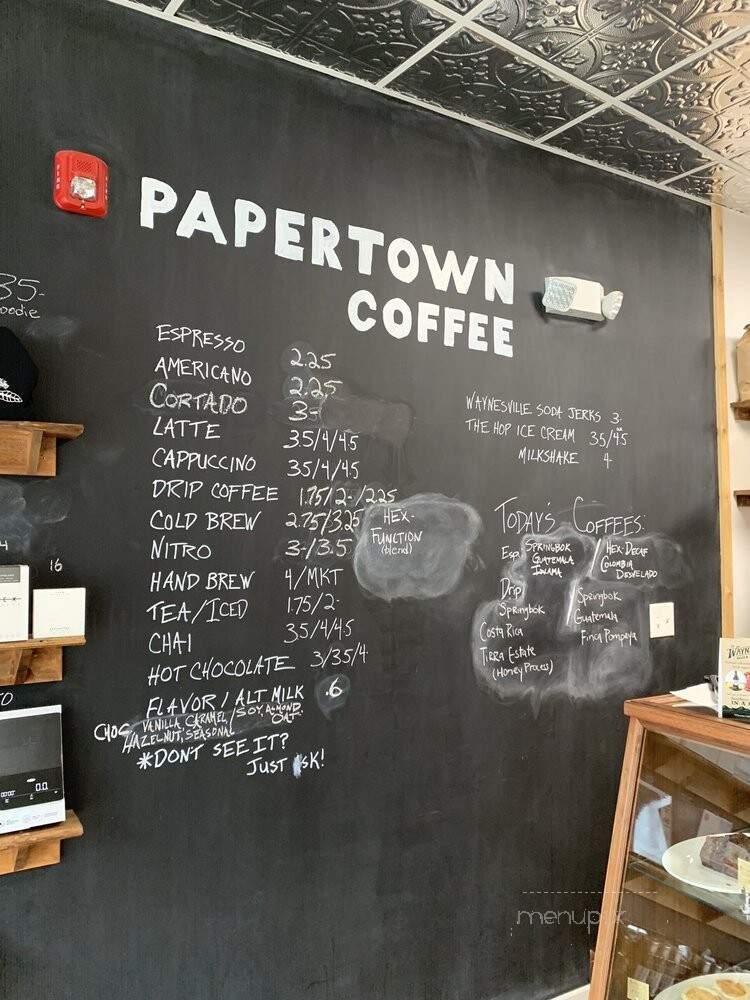 FIRE
PAPERTOWN
COFFEE
35-
oodie
ESPRESSO 2.25
AMERICANO 2.25
CORTADO 3-
LATTE 3.5/4/4.5
CAPPUCCINO 3.5/4/4.5
DRIP COFFEE 1.75/2-/2.25
COLD BREW 2.75/3.25
NITRO 3-/3.5
HAND BREW 4/MKT
TEA/ICED 1.75/2-
CHAI 3.5/4/4.5
HOT CHOCOLATE 3/3.5/4
FLAVOR / ALT MILK .6
CHOC VANILLA CARAMEL / SOY, ALMOND
HAZELNUT, SEASONAL OAT
*DONT SEE IT?
JUST ASK!
HEX-
FUNCTION
(blend)
WAYNESVILLE SODA JERKS 3-
THE HOP ICE CREAM 3.5/4.5
MILKSHAKE 4
TODAY'S COFFEES:
Esp. SPRINGBOK
GUATEMALA
HEX-DECAF
COLOMBIA
Drip
Springbok
Costa Rica
Tirra Estate
(Honey Process)
Springbok
Guatemala
Finca Pompeya
16
0.0
menupix